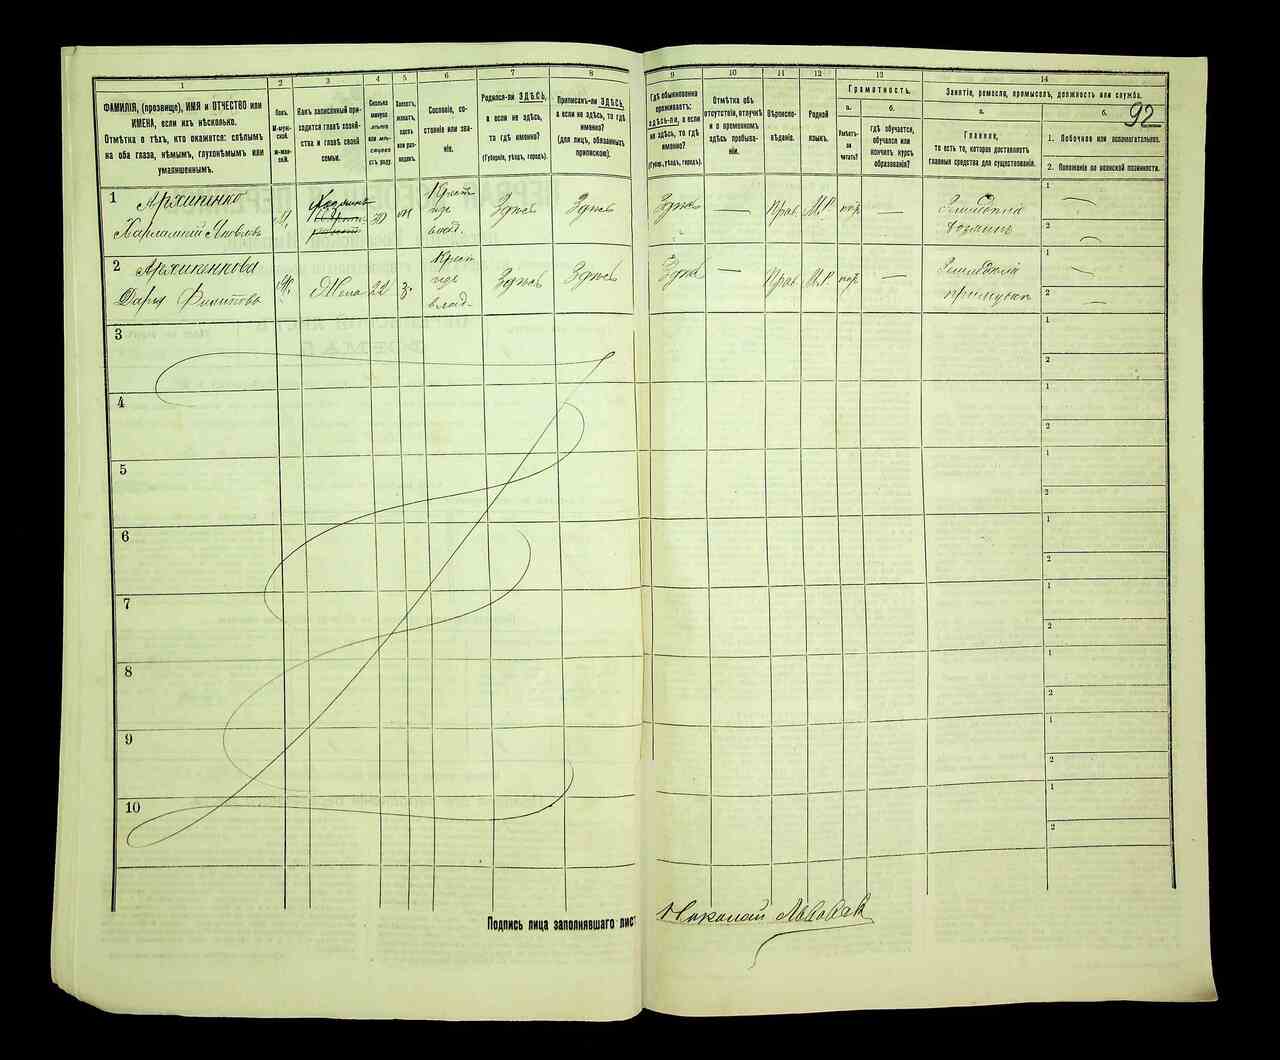 92
1
2
3
4
5
6
7
8
9
10
11
12
13
14
ФАМИЛІЯ, (прозвище), ИМЯ и ОТЧЕСТВО или
ИМЕНА, если ихъ нѣсколько.
Отмѣтка о тѣхъ, кто окажется: слѣпымъ
на оба глаза, нѣмымъ, глухонѣмымъ или
умалишеннымъ.
Полъ.
М-муж-
ской.
Ж-жен-
скій.
Какъ записанный при-
ходится главѣ хозяй-
ства и главѣ своей
семьи.
Сколько
минуло
лѣтъ
или мѣ-
сяцевъ
съ роду.
Холостъ,
женатъ,
вдовъ
или раз-
веденъ.
Сословіе, со-
стояніе или зва-
ніе.
Родился-ли ЗДѢСЬ,
а если не здѣсь,
то гдѣ именно?
(Губернія, уѣздъ, городъ).
Приписанъ-ли ЗДѢСЬ,
а если не здѣсь, то гдѣ
именно?
(для лицъ, обязанныхъ
припискою).
Гдѣ обыкновенно
проживаетъ:
здѣсь-ли, а если
не здѣсь, то гдѣ
именно?
(Губер., уѣздъ, городъ).
Отмѣтка объ
отсутствіи, отлучкѣ
и о временномъ
здѣсь пребыва-
ніи.
Вѣроиспо-
вѣданіе.
Родной
языкъ.
Грамотность.
а.
б.
Умѣетъ-
ли
читать?
гдѣ обучается,
обучался или
кончилъ курсъ
образованія?
Занятіе, ремесло, промыселъ, должность или служба.
а.
б.
Главное,
то есть то, которое доставляетъ
главныя средства для существованія.
1. Побочное или вспомогательное.
2. Положеніе по воинской повинности.
1
Архипенко
Харлампій Яковлевъ
М.
Хозяинъ
30
жен
Крест.
изъ
влад.
Здѣсь
Здѣсь
Здѣсь
—
Прав.
М.Р.
—
Земледѣліе
хозяинъ
1
—
2
—
2
Архипенкова
Дарья Филиппова
Ж.
Жена
22
з.
Крест
изъ
влад.
Здѣсь
Здѣсь
Здѣсь
—
Прав.
М.Р.
—
Земледѣліе
1
—
2
—
3
1
2
4
1
2
5
1
2
6
1
2
7
1
2
8
1
2
9
1
2
10
1
2
Подпись лица заполнявшаго лист
Николай